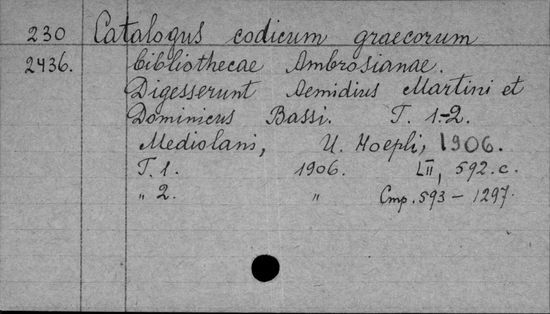 230 Catalogus codicum graecorum
2436. bibliothecae Ambrosianae.
Digesserunt Aemidius Martini et
Dominicus Bassi. T. 1-2.
Mediolani, U. Hoepli, 1906.
T. 1. 1906. LII, 592. c.
„ 2. „ Cmp. 593 – 1297.